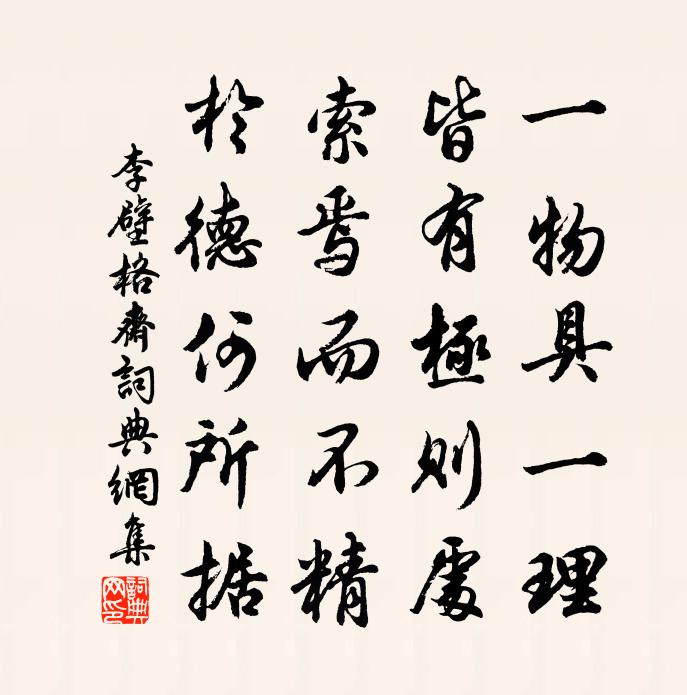 一物具一理
皆有極則處
索焉而不精
於德何所据
李壁格齋詞典網集
詞典網印